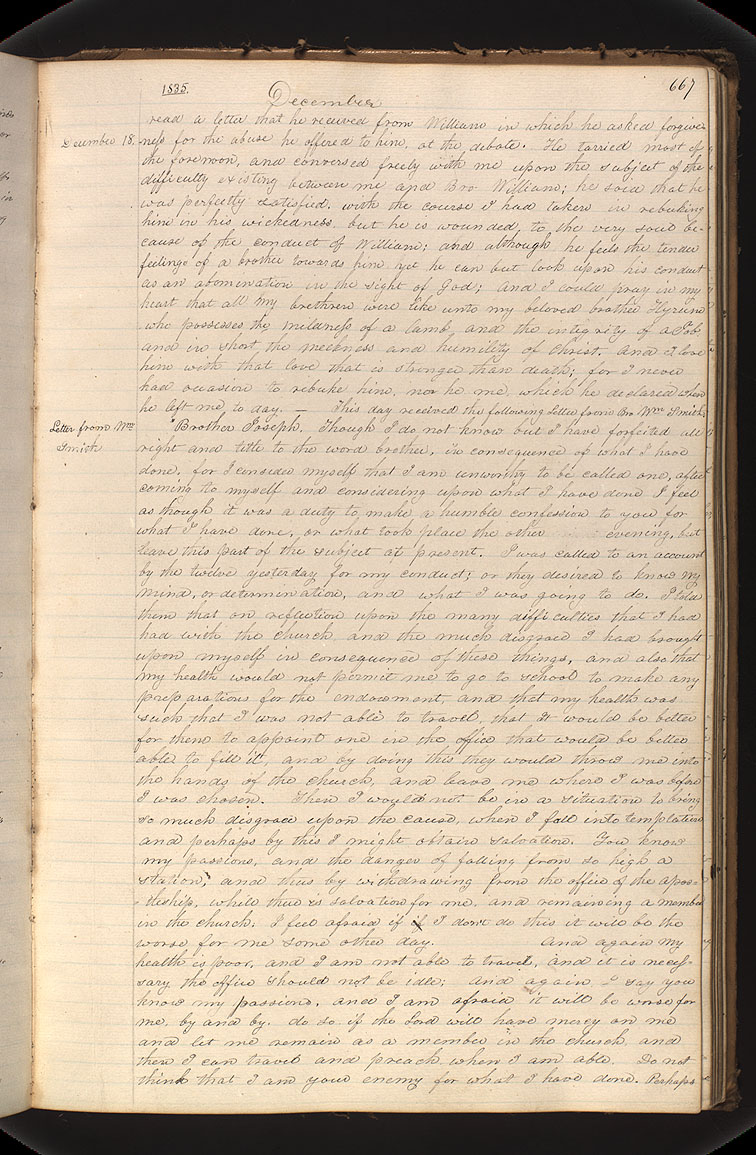 1835. December 667
read a letter that he received from William in which he asked forgive-
December 18. ness for the abuse he offered to him, at the debate. He tarried most of
the forenoon, and conversed freely with me upon the subject of the
difficulty existing between me and Bro. William; he said that he
was perfectly satisfied, with the course I had taken in rebuking
him in his wickedness, but he is wounded, to the very soul be-
cause of the conduct of William; and although he feels the tender
feelings of a brother towards him yet he can but look upon his conduct
as an abomination in the sight of God; and I could pray in my
heart that all my brethren were like unto my beloved brother Hyrum
who possesses the mildness of a lamb, and the integrity of a Job
and in short, the meekness and humility of Christ, and I love
him with that love that is stronger than death; for I never
had occasion to rebuke him, nor he me, which he declared when
he left me, to day. — This day received the following letter from Bro Wm. Smith
Letter from Wm. Smith
"Brother Joseph, Though I do not know but I have forfeited all
right and title to the word brother, in consequence of what I have
done, for I consider myself that I am unworthy to be called one, after
coming to myself and considering upon what I have done I feel
as though it was a duty to make a humble confession to you for
what I have done, or what took place the other evening, but
leave this part of the subject at present. I was called to an account
by the twelve yesterday for my conduct; or they desired to know my
mind, or determination, and what I was going to do. I told
them that on reflection upon the many difficulties that I had
had with the church and the much disgrace I had brought
upon myself in consequence of these things, and also that
my health would not permit me to go to school to make any
preparations for the endowment, and that my health was
such that I was not able to travel, that it would be better
for them to appoint one in the office that would be better
able to fill it, and by doing this they would throw me into
the hands of the church, and leave me where I was before
I was chosen. Then I would not be in a situation to bring
so much disgrace upon the cause, when I fell into temptation
and perhaps by this I might obtain salvation. You know
my passions, and the danger of falling from so high a
station, and thus by withdrawing from the office of the apos-
-tleship, while there is salvation for me, and remaining a member
in the church; I feel afraid if if I don't do this it will be the
worse for me some other day. And again my
health is poor, and I am not able to travel, and it is neces-
sary the office should not be idle; and again I say you
know my passions, and I am afraid it will be worse for
me, by and by. do so if the Lord will have mercy on me
and let me remain as a member in the church, and
then I can travel and preach, when I am able. Do not
think that I am your enemy for what I have done. Perhaps